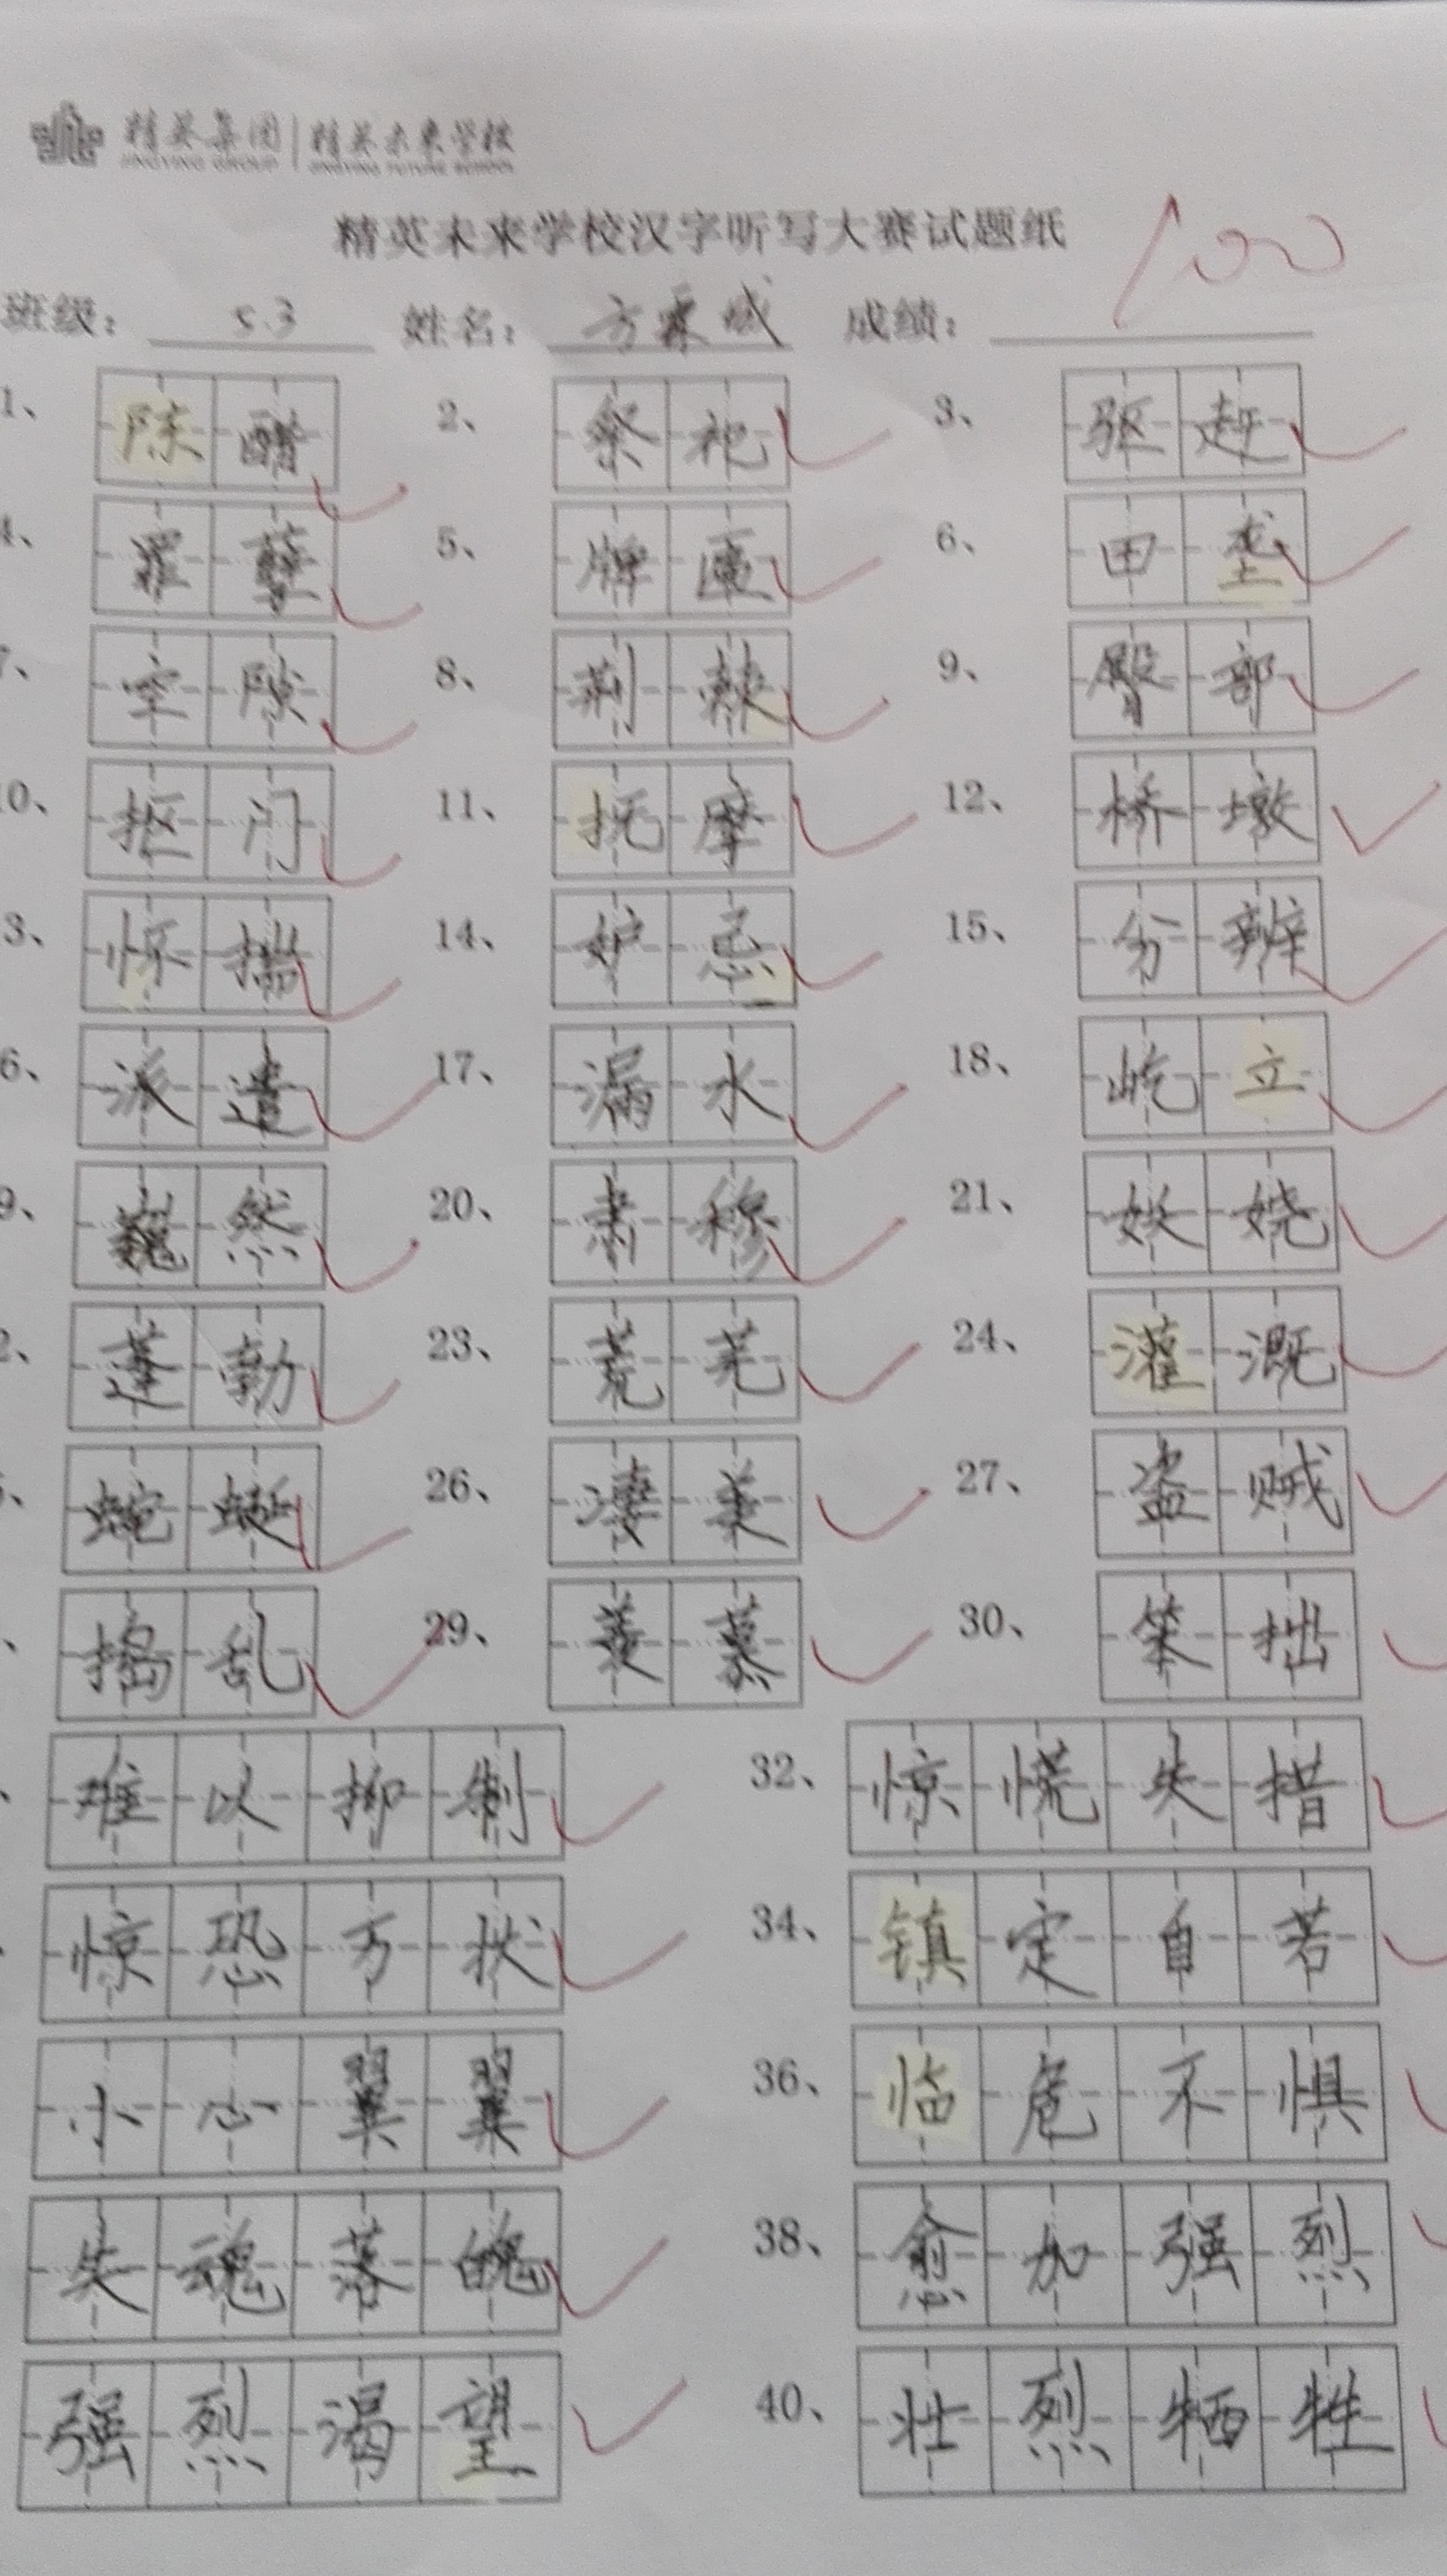 精英集团 | 精英未来学校
JINGYING GROUP | JINGYING FUTURE SCHOOL
精英未来学校汉字听写大赛试题纸
100
班级： 5.3 姓名： 方霖城 成绩：
1、 陈醋 2、 祭祀 3、 驱赶
4、 罪孽 5、 牌匾 6、 田垄
7、 空隙 8、 荆棘 9、 臀部
10、 抠门 11、 抚摩 12、 桥墩
3、 怀揣 14、 妒忌 15、 分辨
6、 派遣 17、 漏水 18、 屹立
9、 巍然 20、 肃穆 21、 妖娆
2、 蓬勃 23、 荒芜 24、 灌溉
5、 蜿蜒 26、 凄美 27、 盗贼
、 捣乱 29、 羡慕 30、 笨拙
、 难以抑制 32、 惊慌失措
惊恐万状 34、 镇定自若
小心翼翼 36、 临危不惧
失魂落魄 38、 愈加强烈
强烈渴望 40、 壮烈牺牲